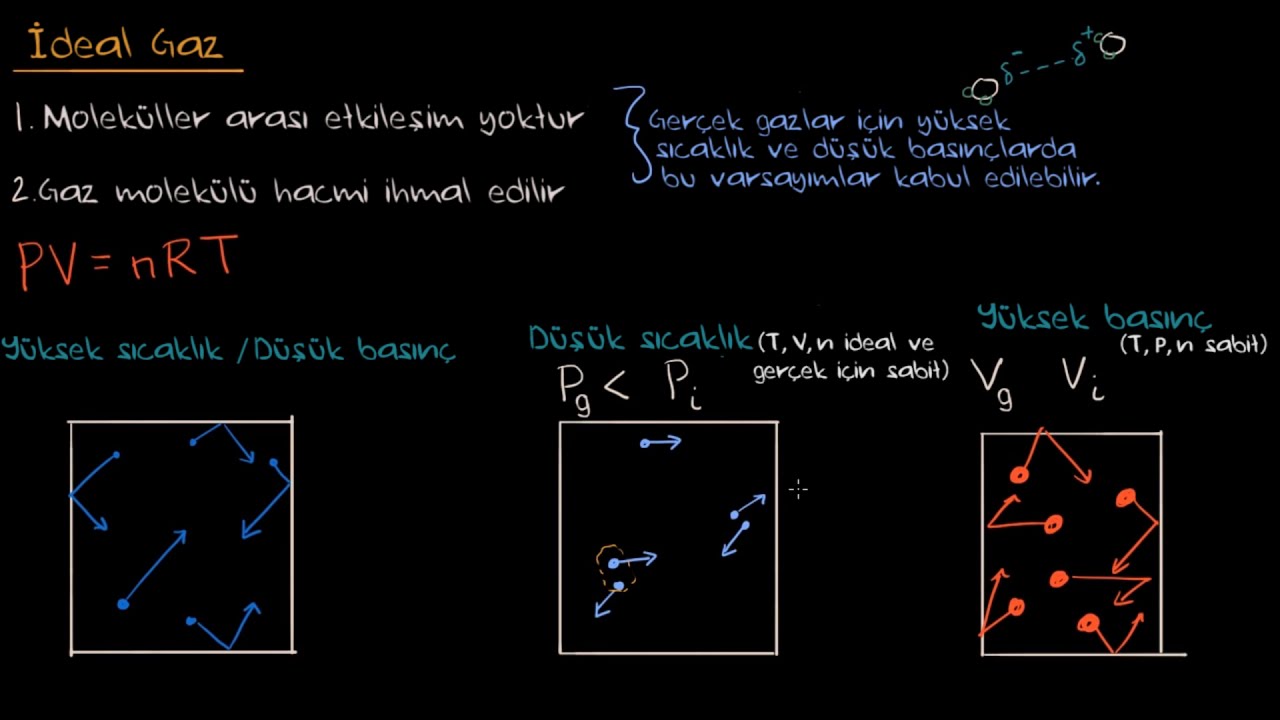 İdeal Gaz
δ⁻ --- δ⁺
1. Moleküller arası etkileşim yoktur
Gerçek gazlar için yüksek
sıcaklık ve düşük basınçlarda
bu varsayımlar kabul edilebilir.
2. Gaz molekülü hacmi ihmal edilir
PV = nRT
Yüksek sıcaklık / Düşük basınç
Düşük sıcaklık (T, V, n ideal ve
gerçek için sabit)
P_g < P_i
Yüksek basınç
(T, P, n sabit)
V_g V_i